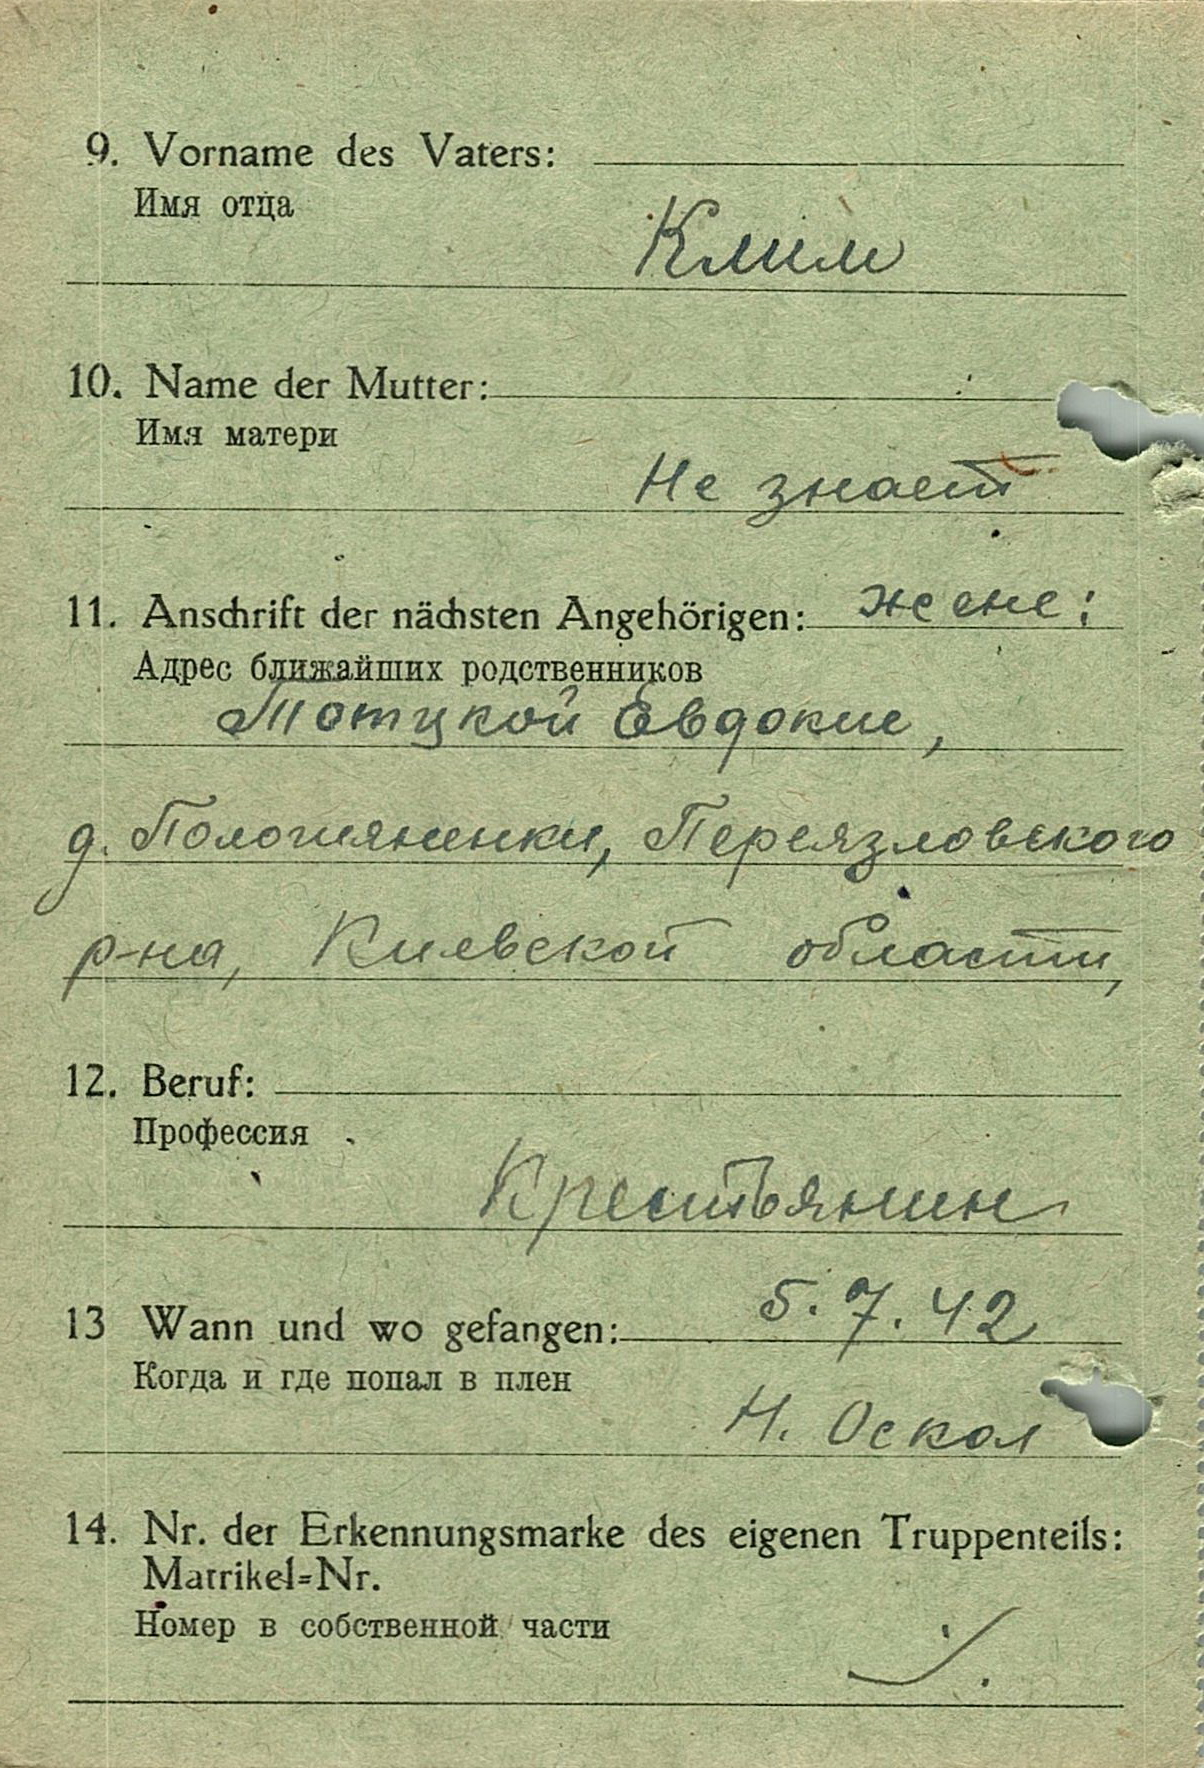 9. Vorname des Vaters:
Имя отца
Клим
10. Name der Mutter:
Имя матери
Не знает
11. Anschrift der nächsten Angehörigen: жене:
Адрес ближайших родственников
Тотцкой Евдокие,
д. Пологияненки, Переязловского
р-на, Киевской области,
12. Beruf:
Профессия
Крестьянин
13 Wann und wo gefangen: 5.7.42
Когда и где попал в плен
Н. Оскол
14. Nr. der Erkennungsmarke des eigenen Truppenteils:
Matrikel=Nr.
Номер в собственной части